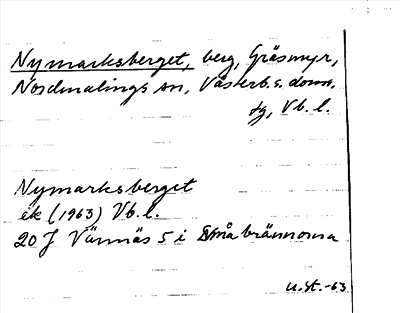 Nymarksberget, berg, Gräsmyr,
Nordmalings sn, Västerb. s. doms.
dg, Vb. l.
Nymarksberget
ek (1963) Vb. l.
20 J Värnäs 5 i Småbrännorna
U. St. -63